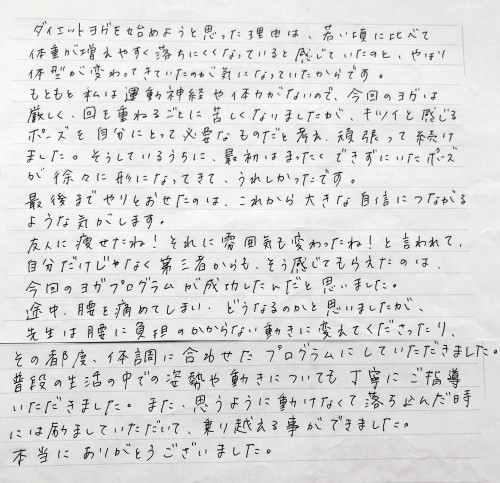 ダイエットヨガを始めようと思った理由は、若い頃に比べて
体重が増えやすく落ちにくくなっていると感じていたのと、やはり
体型が変わってきていたのが気になっていたからです。
もともと私は運動神経や体力がないので、今回のヨガは
厳しく、回を重ねるごとに苦しくなりましたが、キツイと感じる
ポーズを自分にとって必要なものだと考え、頑張って続け
ました。そうしているうちに、最初はまったくできずにいたポーズ
が徐々に形になってきて、うれしかったです。
最後までやりとおせたのは、これから大きな自信につながる
ような気がします。
友人に痩せたね!それに雰囲気も変わったね!と言われて、
自分だけじゃなく第三者からも、そう感じてもらえたのは、
今回のヨガプログラムが成功したんだと思いました。
途中、腰を痛めてしまい、どうなるのかと思いましたが、
先生は腰に負担のかからない動きに変えてくださったり、
その都度、体調に合わせたプログラムにしていただきました。
普段の生活の中での姿勢や動きについても丁寧にご指導
いただきました。また、思うように動けなくて落ち込んだ時
には励ましていただいて、乗り越える事ができました。
本当にありがとうございました。